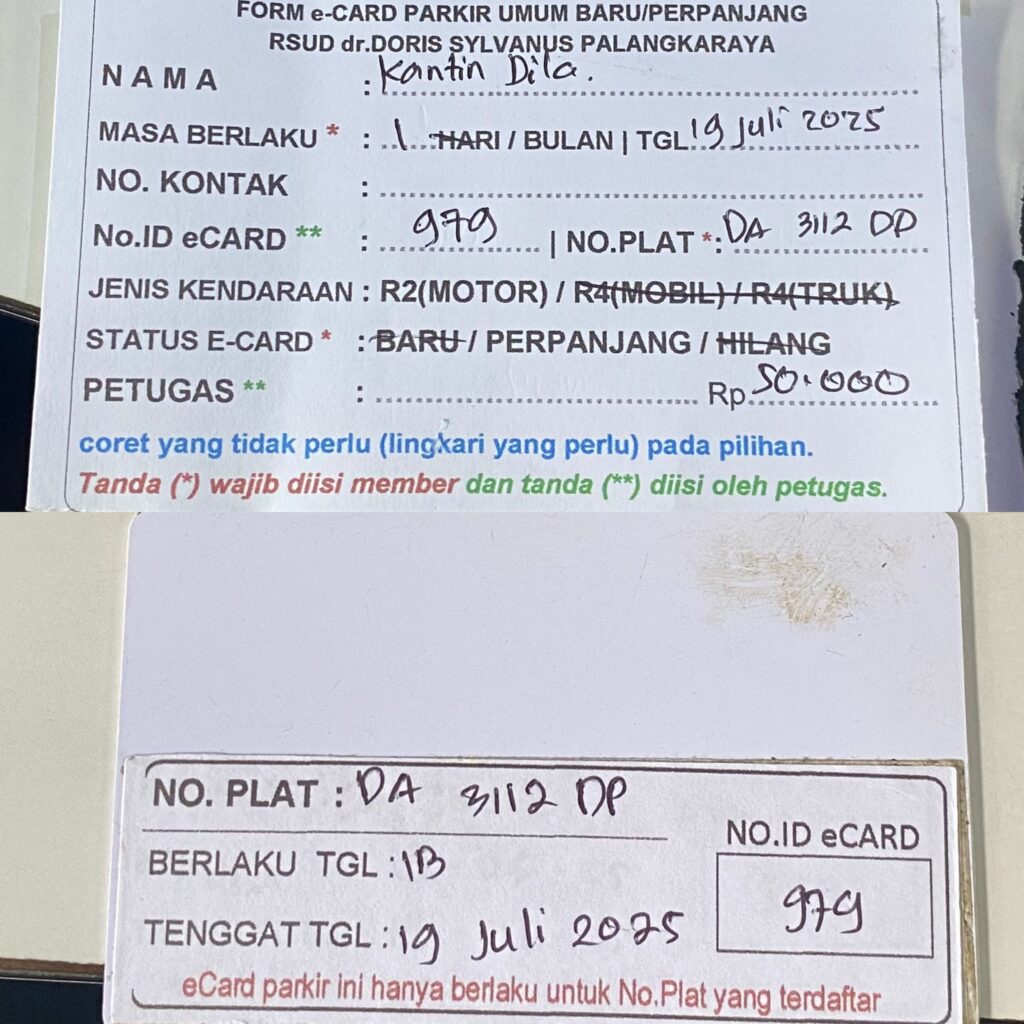 FORM e-CARD PARKIR UMUM BARU/PERPANJANG
RSUD dr.DORIS SYLVANUS PALANGKARAYA
N A M A : Kantin Dila.
MASA BERLAKU * : 1 HARI / BULAN | TGL 19 Juli 2025
NO. KONTAK :
No.ID eCARD ** : 979 | NO.PLAT *: DA 3112 DP
JENIS KENDARAAN : R2(MOTOR) / R4(MOBIL) / R4(TRUK)
STATUS E-CARD * : BARU / PERPANJANG / HILANG
PETUGAS ** : Rp 50.000
coret yang tidak perlu (lingkari yang perlu) pada pilihan.
Tanda (*) wajib diisi member dan tanda (**) diisi oleh petugas.
NO. PLAT : DA 3112 DP
BERLAKU TGL : 1B
TENGGAT TGL : 19 Juli 2025
NO.ID eCARD
979
eCard parkir ini hanya berlaku untuk No.Plat yang terdaftar